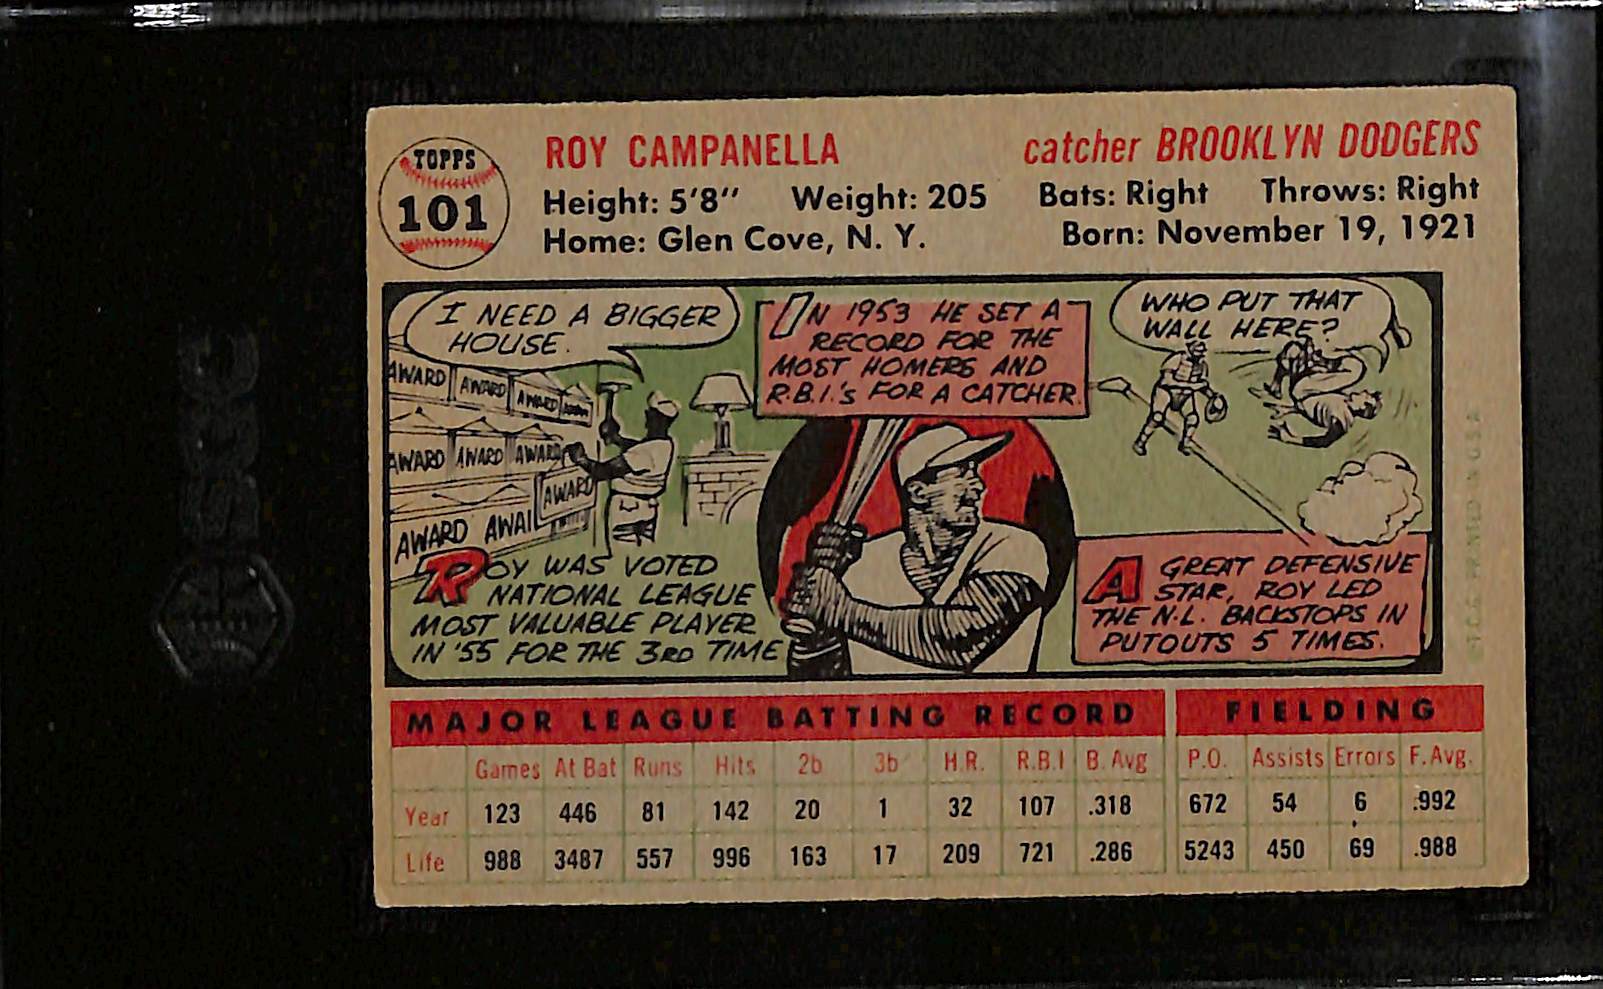 TOPPS
101
ROY CAMPANELLA
catcher BROOKLYN DODGERS
Height: 5'8" Weight: 205 Bats: Right Throws: Right
Home: Glen Cove, N. Y. Born: November 19, 1921
I NEED A BIGGER
HOUSE.
AWARD AWARD AWARD AWARD
AWARD AWARD AWARD
AWARD
AWARD AWAI
ROY WAS VOTED
NATIONAL LEAGUE
MOST VALUABLE PLAYER
IN '55 FOR THE 3RD TIME
IN 1953 HE SET A
RECORD FOR THE
MOST HOMERS AND
R.B.I.'s FOR A CATCHER.
WHO PUT THAT
WALL HERE?
A GREAT DEFENSIVE
STAR, ROY LED
THE N.L. BACKSTOPS IN
PUTOUTS 5 TIMES.
©T.C.G. PRINTED IN U.S.A.
MAJOR LEAGUE BATTING RECORD FIELDING
Games At Bat Runs Hits 2b 3b H.R. R.B.I B. Avg P.O. Assists Errors F. Avg.
Year 123 446 81 142 20 1 32 107 .318 672 54 6 .992
Life 988 3487 557 996 163 17 209 721 .286 5243 450 69 .988
SGC